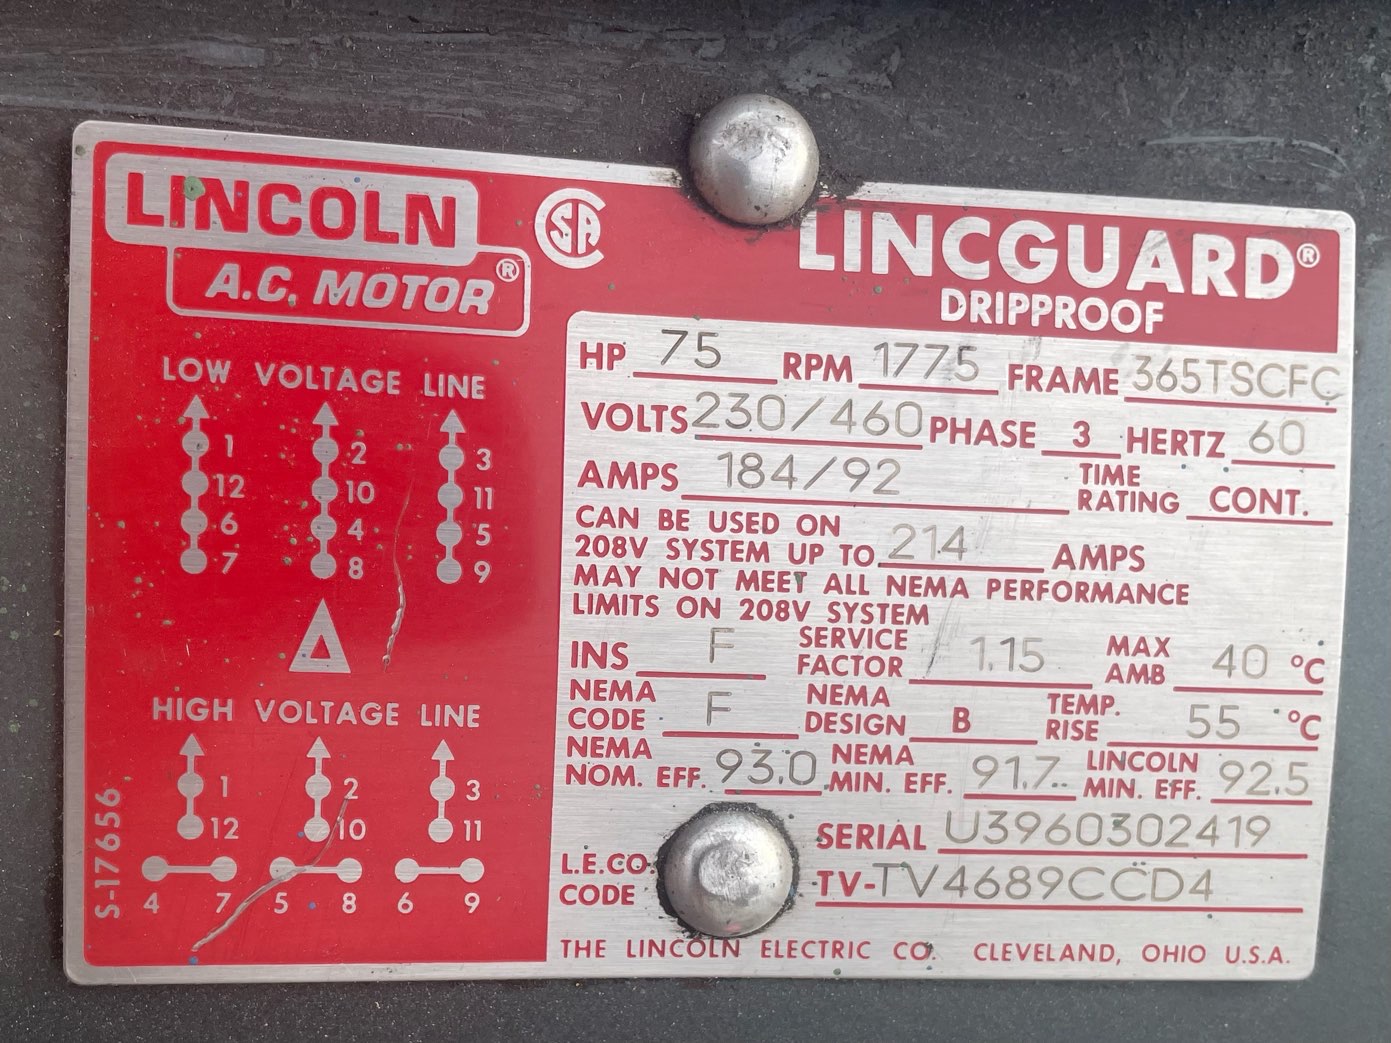 LINCOLN
A.C. MOTOR®
CSA
LINCGUARD®
DRIPPROOF
LOW VOLTAGE LINE
1 2 3
12 10 11
6 4 5
7 8 9
HIGH VOLTAGE LINE
1 2 3
12 10 11
4 7 5 8 6 9
S-17656
HP 75 RPM 1775 FRAME 365TSCFC
VOLTS 230/460 PHASE 3 HERTZ 60
AMPS 184/92 TIME RATING CONT.
CAN BE USED ON
208V SYSTEM UP TO 214 AMPS
MAY NOT MEET ALL NEMA PERFORMANCE
LIMITS ON 208V SYSTEM
INS F SERVICE FACTOR 1.15 MAX AMB 40 °C
NEMA CODE F NEMA DESIGN B TEMP. RISE 55 °C
NEMA NOM. EFF. 93.0 NEMA MIN. EFF. 91.7 LINCOLN MIN. EFF. 92.5
SERIAL U3960302419
L.E.CO. CODE TV-TV4689CCD4
THE LINCOLN ELECTRIC CO. CLEVELAND, OHIO U.S.A.